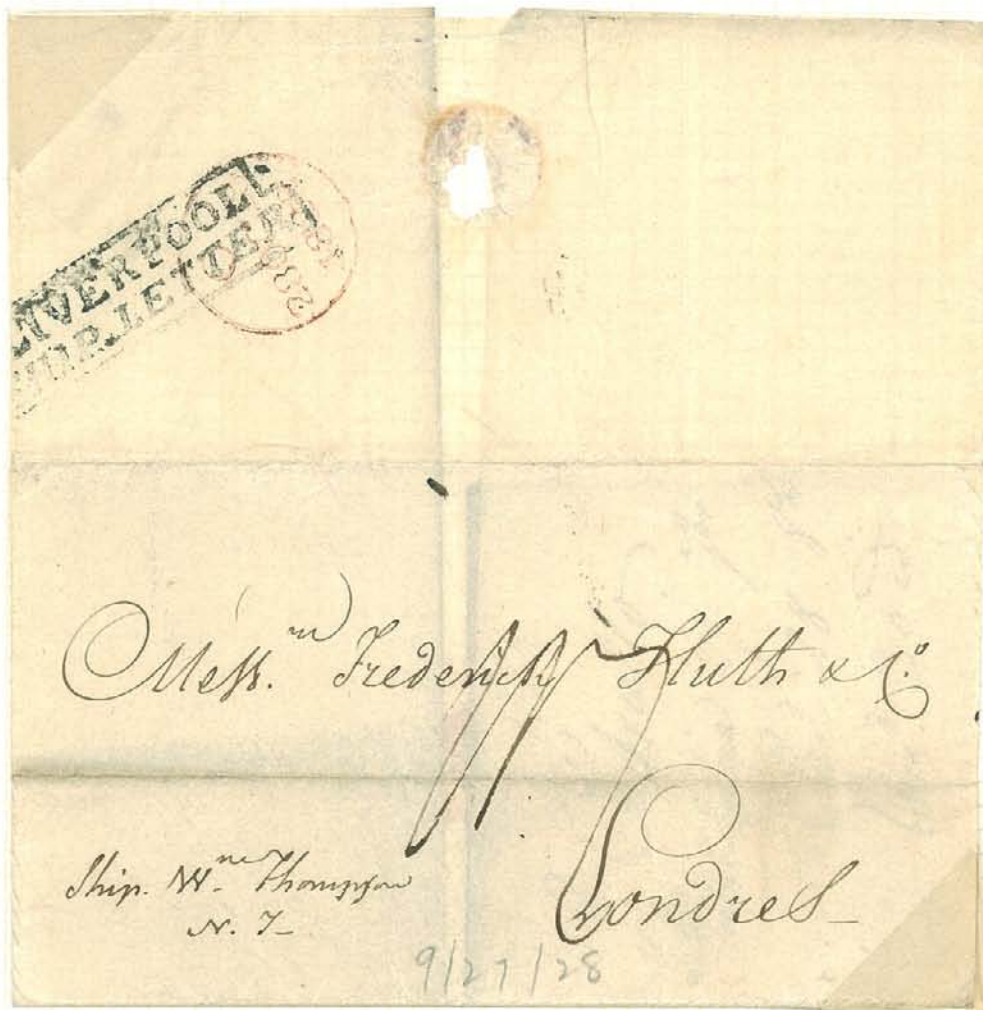 LIVERPOOL
SHIP LETTER
28
1828
Mess.rs Frederick Huth & Co.
Londres
Ship. Wm. Thompson
9/27/28